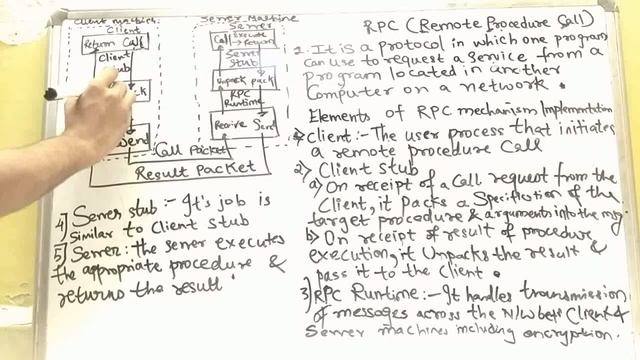 Client Machine
Client
Return Call
Client
Stub
Send
Server Machine
Server
Call Execute Return
Server
Stub
Unpack pack
RPC
Runtime
Receive Send
Call Packet
Result Packet
4] Server stub :- It's job is
Similar to Client stub
5] Server: The server executes
the appropriate procedure &
returns the result.
RPC (Remote Procedure Call)
It is a protocol in which one program
Can use to request a service from a
program located in another
Computer on a network.
Elements of RPC mechanism/Implementation
Client :- The user process that initiates
a remote procedure Call
2) Client Stub
a) On receipt of a Call request from the
Client, it packs a Specification of the
target procedure & arguments into the msg.
b) On receipt of result of procedure
execution, it Unpacks the result &
pass it to the Client.
3) RPC Runtime :- It handles transmission
of messages across the N/w betn Client &
Server machines including encryption.